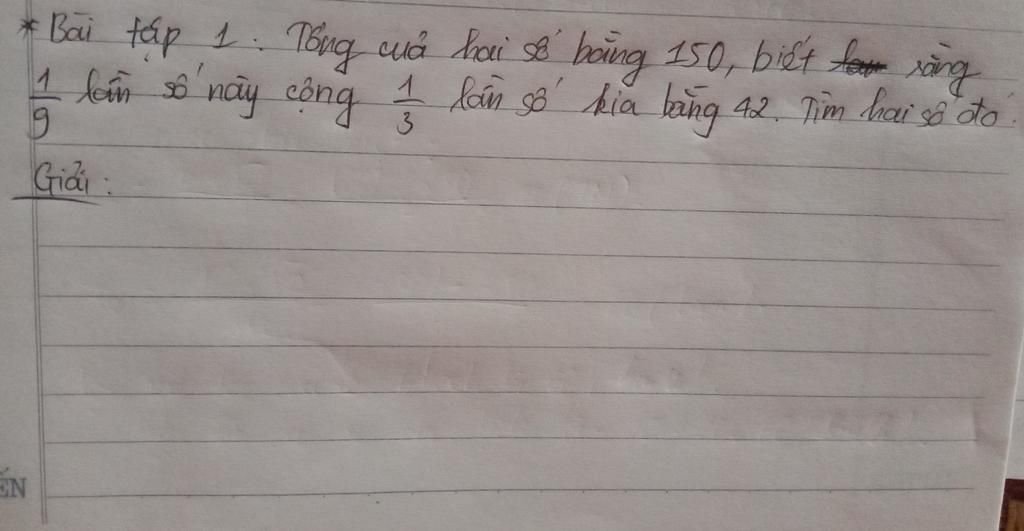 * Bài tập 1 : Tổng cuả hai số bằng 150, biết rằng
1/9 lần số này cộng 1/3 lần số kia bằng 42. Tìm hai số đó.
Giải :
ẾN